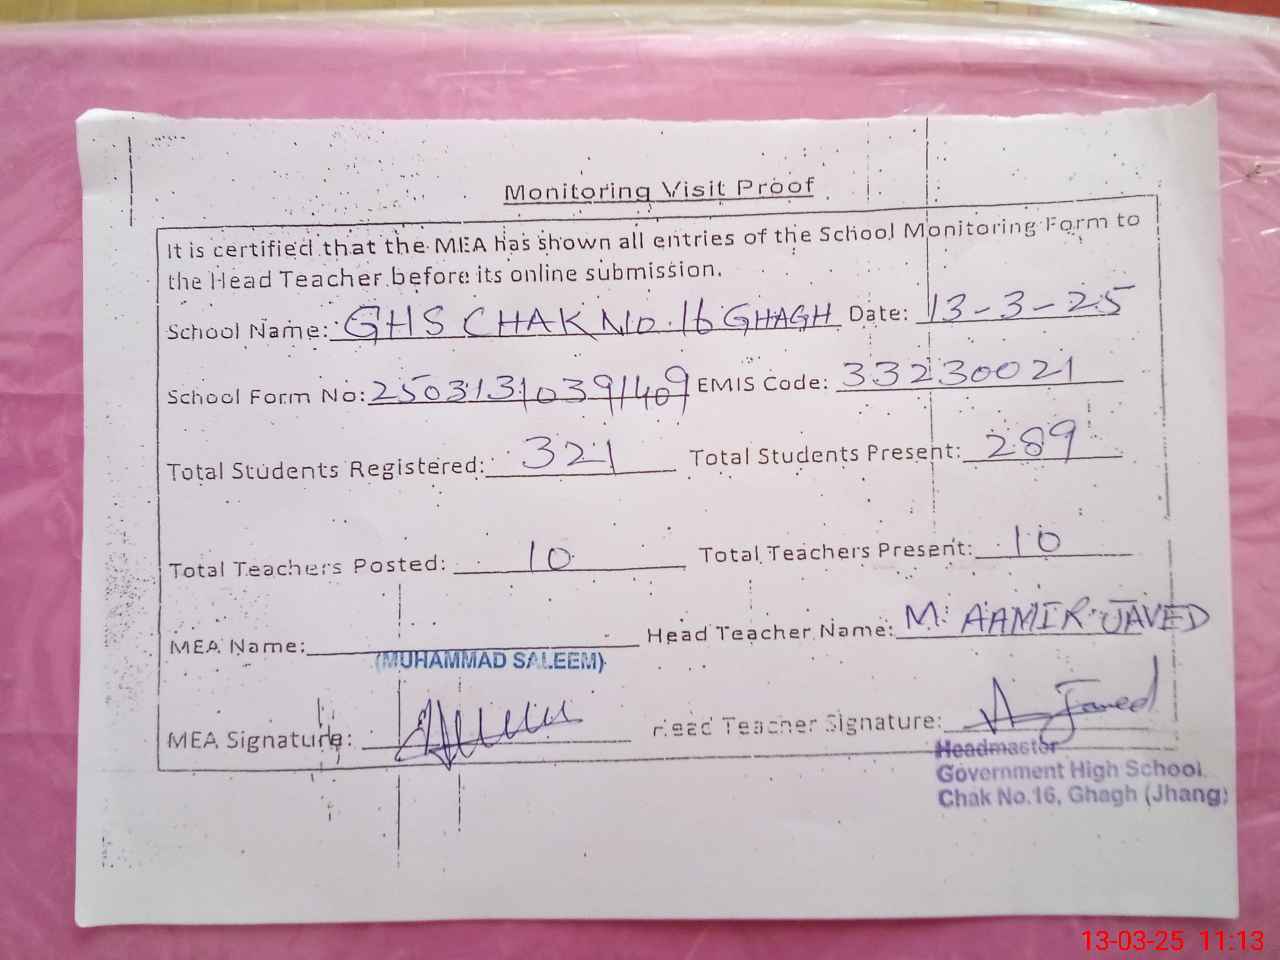 Monitoring Visit Proof
It is certified that the MEA has shown all entries of the School Monitoring Form to
the Head Teacher before its online submission.
School Name: GHS CHAK No. 16 GHAGH Date: 13-3-25
School Form No: 25031310391409 EMIS Code: 33230021
Total Students Registered: 321 Total Students Present: 289
Total Teachers Posted: 10 Total Teachers Present: 10
MEA Name: Head Teacher Name: M. AAMIR JAVED
(MUHAMMAD SALEEM)
MEA Signature: Head Teacher Signature: Javed
Headmaster
Government High School
Chak No.16, Ghagh (Jhang)
13-03-25 11:13